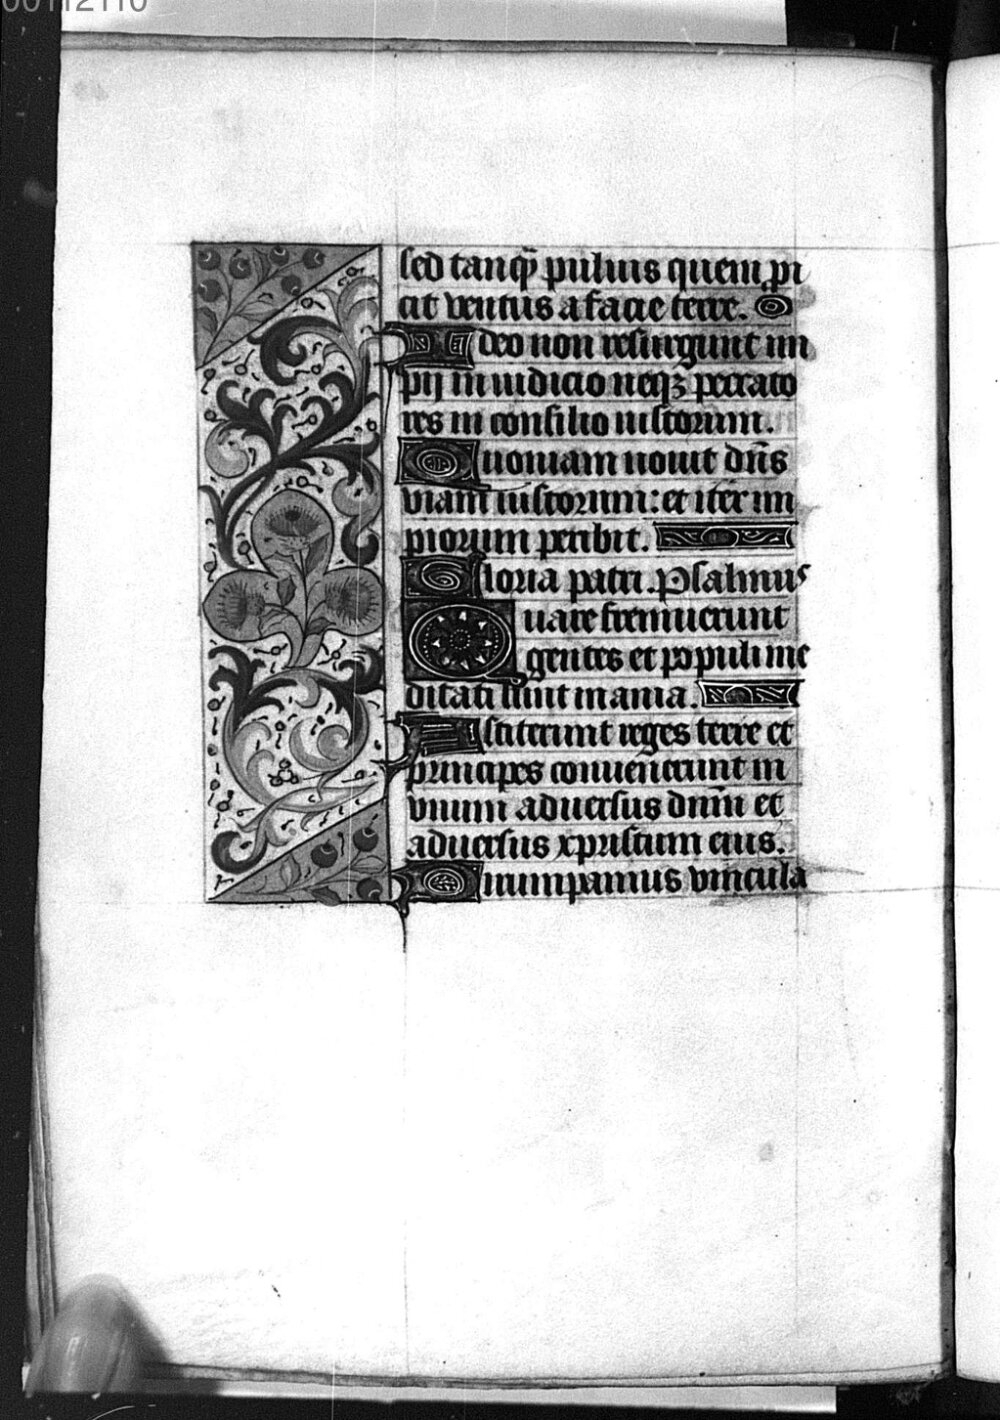 00112110
sed tanq̃ puluis quem pi
cit ventus a facie terre.
Ideo non resurgunt im
pij in iudicio neqꝫ peccato
res in consilio iustorum.
Quoniam nouit dñs
viam iustorum: et iter im
piorum peribit.
Gloria patri. Psalmus
Quare fremuerunt
gentes et populi me
ditati sunt inania.
Astiterunt reges terre et
principes conuenerunt in
vnum aduersus dnm̃ et
aduersus xpristum eius.
Dirumpamus vincula